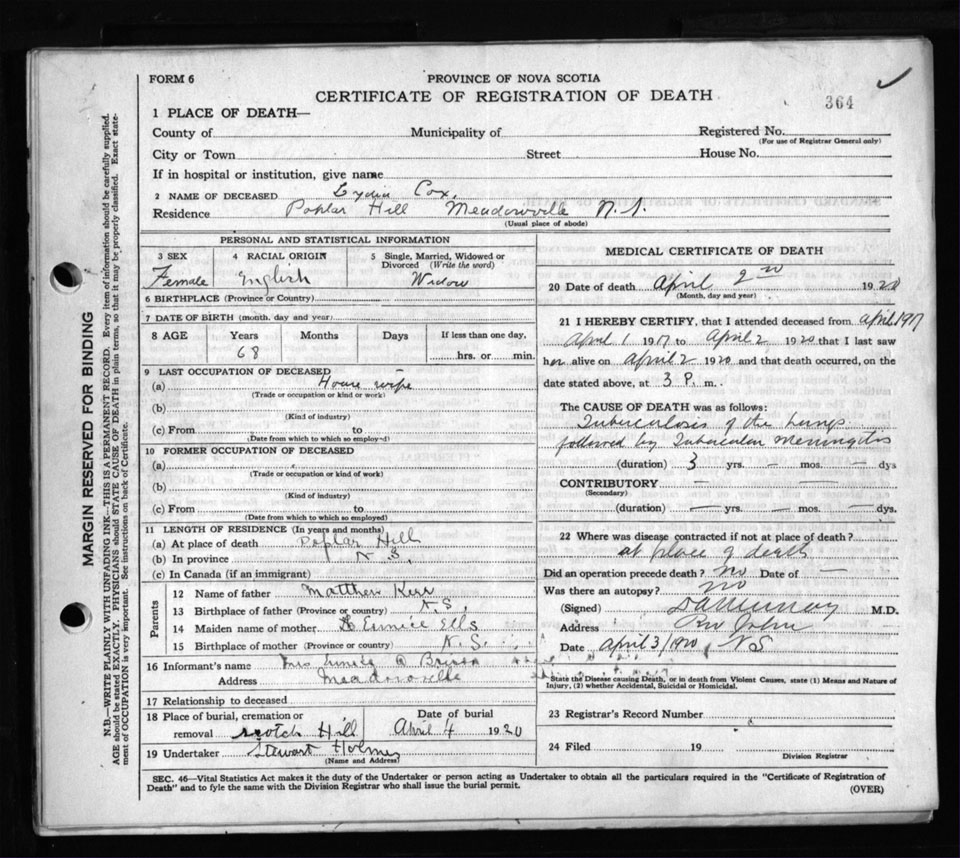 FORM 6
PROVINCE OF NOVA SCOTIA
CERTIFICATE OF REGISTRATION OF DEATH
364
1 PLACE OF DEATH—
County of Municipality of Registered No.
(For use of Registrar General only)
City or Town Street House No.
If in hospital or institution, give name
2 NAME OF DECEASED Lydia Cox,
Residence Poplar Hill Meadowville N.S.
(Usual place of abode)
PERSONAL AND STATISTICAL INFORMATION
3 SEX 4 RACIAL ORIGIN 5 Single, Married, Widowed or Divorced (Write the word)
Female English Widow
6 BIRTHPLACE (Province or Country)
7 DATE OF BIRTH (month, day and year)
8 AGE Years Months Days If less than one day,
68 hrs. or min.
9 LAST OCCUPATION OF DECEASED
(a) House wife
(Trade or occupation or kind or work)
(b)
(Kind of industry)
(c) From to
(Date from which to which so employed)
10 FORMER OCCUPATION OF DECEASED
(a)
(Trade or occupation or kind of work)
(b)
(Kind of industry)
(c) From to
(Date from which to which so employed)
11 LENGTH OF RESIDENCE (In years and months)
(a) At place of death Poplar Hill
(b) In province N S,
(c) In Canada (if an immigrant)
Parents
12 Name of father Matthew Kerr
13 Birthplace of father (Province or country) N.S,
14 Maiden name of mother Eunice Ells
15 Birthplace of mother (Province or country) N.S.
16 Informant's name Mrs
Address Meadowville
17 Relationship to deceased
18 Place of burial, cremation or removal Scotch Hill Date of burial April 4 1920
19 Undertaker Stewart Holmes
(Name and Address)
MEDICAL CERTIFICATE OF DEATH
20 Date of death April 2nd 1920
(Month, day and year)
21 I HEREBY CERTIFY, that I attended deceased from April 1917
April 1 1917 to April 2 1920 that I last saw
her alive on April 2 1920 and that death occurred, on the
date stated above, at 3 P. m.
The CAUSE OF DEATH was as follows:
Tuberculosis of the Lungs
followed by Tubercular Meningitis
(duration) 3 yrs. — mos. — dys
CONTRIBUTORY — —
(Secondary)
(duration) — yrs. — mos. — dys.
22 Where was disease contracted if not at place of death?
at place of death
Did an operation precede death? no Date of —
Was there an autopsy? no
(Signed) M.D.
Address Riv John
Date April 3/1920, NS
State the Disease causing Death, or in death from Violent Causes, state (1) Means and Nature of
Injury, (2) whether Accidental, Suicidal or Homicidal.
23 Registrar's Record Number
24 Filed 19
Division Registrar
SEC. 46—Vital Statistics Act makes it the duty of the Undertaker or person acting as Undertaker to obtain all the particulars required in the "Certificate of Registration of
Death" and to fyle the same with the Division Registrar who shall issue the burial permit.
(OVER)
MARGIN RESERVED FOR BINDING
N.B.—WRITE PLAINLY WITH UNFADING INK—THIS IS A PERMANENT RECORD. Every item of information should be carefully supplied.
AGE should be stated EXACTLY. PHYSICIANS should STATE CAUSE OF DEATH in plain terms, so that it may be properly classified. Exact state-
ment of OCCUPATION is very important. See instructions on back of Certificate.